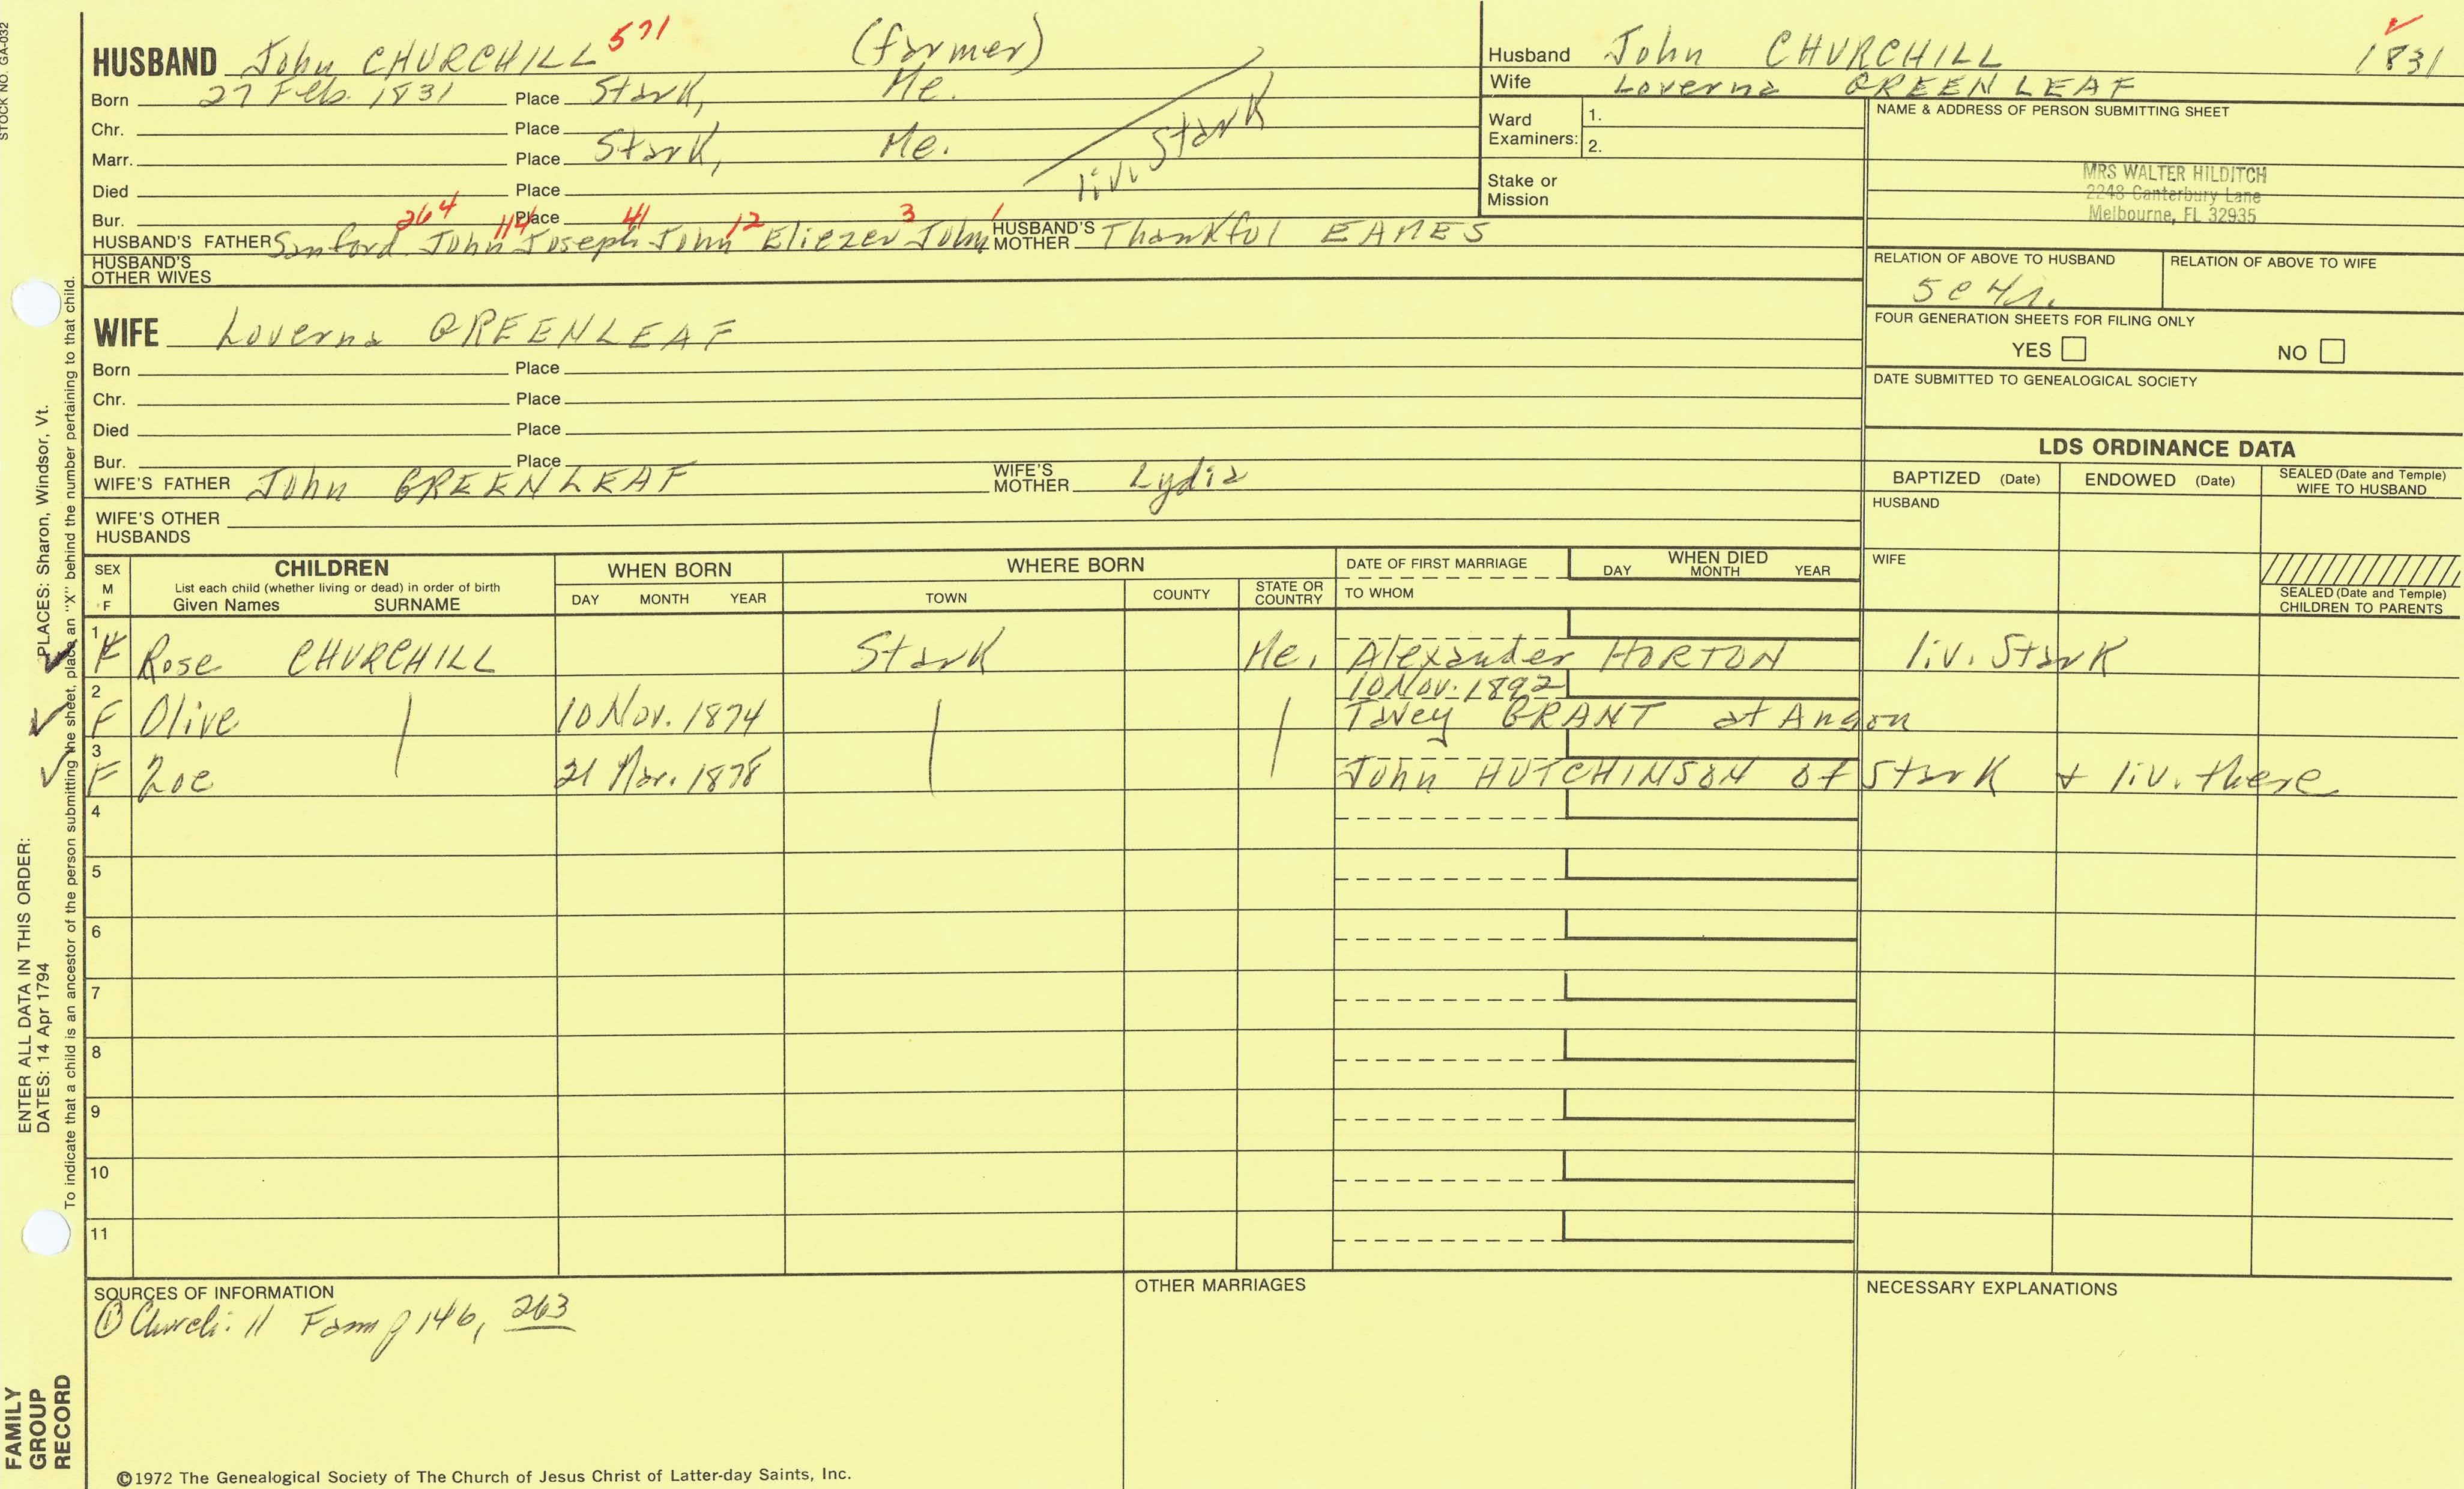 STOCK NO. GA-032
HUSBAND John CHURCHILL 571 (farmer)
Born 27 Feb. 1831 Place Stark, Me.
Chr. Place
Marr. Place Stark, Me.
liv. Stark
Died Place
Bur. Place
264 114 41 12 3 1
HUSBAND'S FATHER Sanford John Joseph John Eliezer John HUSBAND'S MOTHER Thankful EAMES
HUSBAND'S OTHER WIVES
Husband John CHURCHILL 1831
Wife Loverna GREENLEAF
Ward Examiners: 1.
2.
Stake or Mission
NAME & ADDRESS OF PERSON SUBMITTING SHEET
MRS WALTER HILDITCH
2248 Canterbury Lane
Melbourne, FL 32935
RELATION OF ABOVE TO HUSBAND RELATION OF ABOVE TO WIFE
5c4r.
FOUR GENERATION SHEETS FOR FILING ONLY
YES NO
DATE SUBMITTED TO GENEALOGICAL SOCIETY
WIFE Loverna GREENLEAF
Born Place
Chr. Place
Died Place
Bur. Place
WIFE'S FATHER John GREENLEAF WIFE'S MOTHER Lydia
WIFE'S OTHER HUSBANDS
LDS ORDINANCE DATA
BAPTIZED (Date) ENDOWED (Date) SEALED (Date and Temple) WIFE TO HUSBAND
HUSBAND
WIFE
SEALED (Date and Temple) CHILDREN TO PARENTS
SEX M F
CHILDREN
List each child (whether living or dead) in order of birth
Given Names SURNAME
WHEN BORN
DAY MONTH YEAR
WHERE BORN
TOWN COUNTY STATE OR COUNTRY
DATE OF FIRST MARRIAGE
TO WHOM
WHEN DIED
DAY MONTH YEAR
1 F Rose CHURCHILL Stark Me. Alexander HORTON liv. Stark
10 Nov. 1892
2 F Olive 10 Nov. 1874 Tavey GRANT at Anson
3 F Zoe 21 Mar. 1878 John HUTCHINSON of Stark & liv. there
4
5
6
7
8
9
10
11
SOURCES OF INFORMATION
① Churchill Fam p 146, 263
OTHER MARRIAGES
NECESSARY EXPLANATIONS
©1972 The Genealogical Society of The Church of Jesus Christ of Latter-day Saints, Inc.
FAMILY GROUP RECORD
ENTER ALL DATA IN THIS ORDER:
DATES: 14 Apr 1794 PLACES: Sharon, Windsor, Vt.
To indicate that a child is an ancestor of the person submitting the sheet, place an "X" behind the number pertaining to that child.